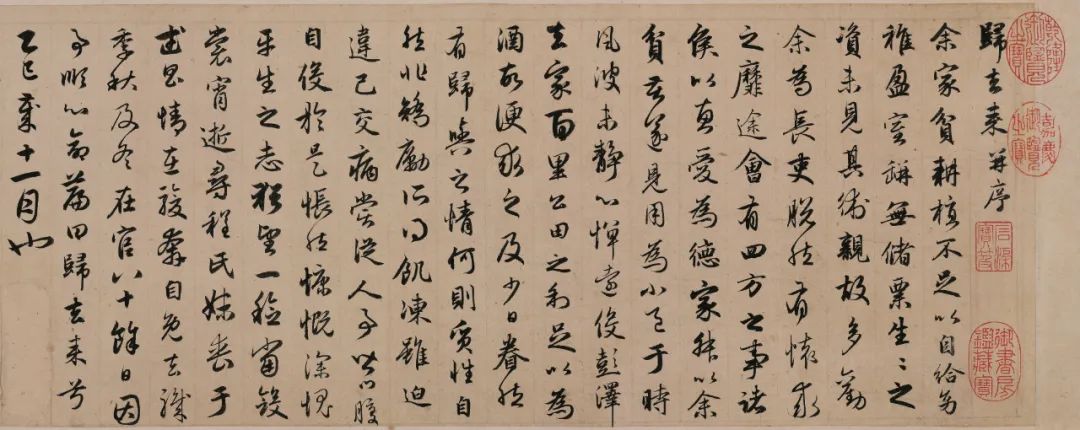 乾隆御覽之寶
嘉慶御覽之寶
石渠寶笈
御書房鑑藏寶
歸去來并序
余家貧耕植不足以自給幼
稚盈室缾無儲粟生〻之
資未見其術親故多勸
余為長吏脫然有懷求
之靡途會有四方之事諸
侯以惠愛為德家叔以余
貧苦遂見用為小邑于時
風波未靜心憚遠役彭澤
去家百里公田之利足以為
酒故便求之及少日眷然
有歸與之情何則質性自
然非矯勵所得飢凍雖迫
違己交病嘗從人事皆口腹
自役於是悵然慷慨深愧
平生之志猶望一稔當斂
裳宵逝尋程氏妹喪于
武昌情在駿奔自免去職
季秋及冬在官八十餘日因
事順心命篇曰歸去來兮
乙巳歲十一月也